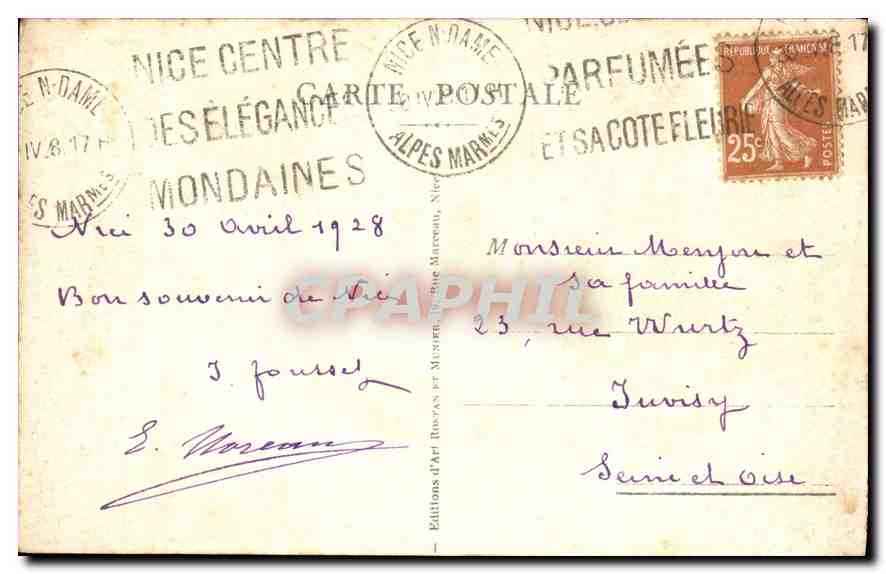 NICE CENTRE
DES ÉLÉGANCE
MONDAINES
NICE N-DAME
ALPES MARMES
CARTE POSTALE
PARFUMÉES
ET SA COTE FLEURIE
RÉPUBLIQUE FRANÇAISE
25c
POSTES
ALPES MAR
E N-DAME
IV.8.17
ES MARMES
Nice 30 avril 1928
Bon souvenir de Nice
J. Fousset
E. Moreau
Editions d'Art ROSTAN ET MUNIER, 19, Rue Marceau, Nice
Monsieur Menjou et
sa famille
23, rue Wurtz
Juvisy
Seine et Oise
CPAPHIL